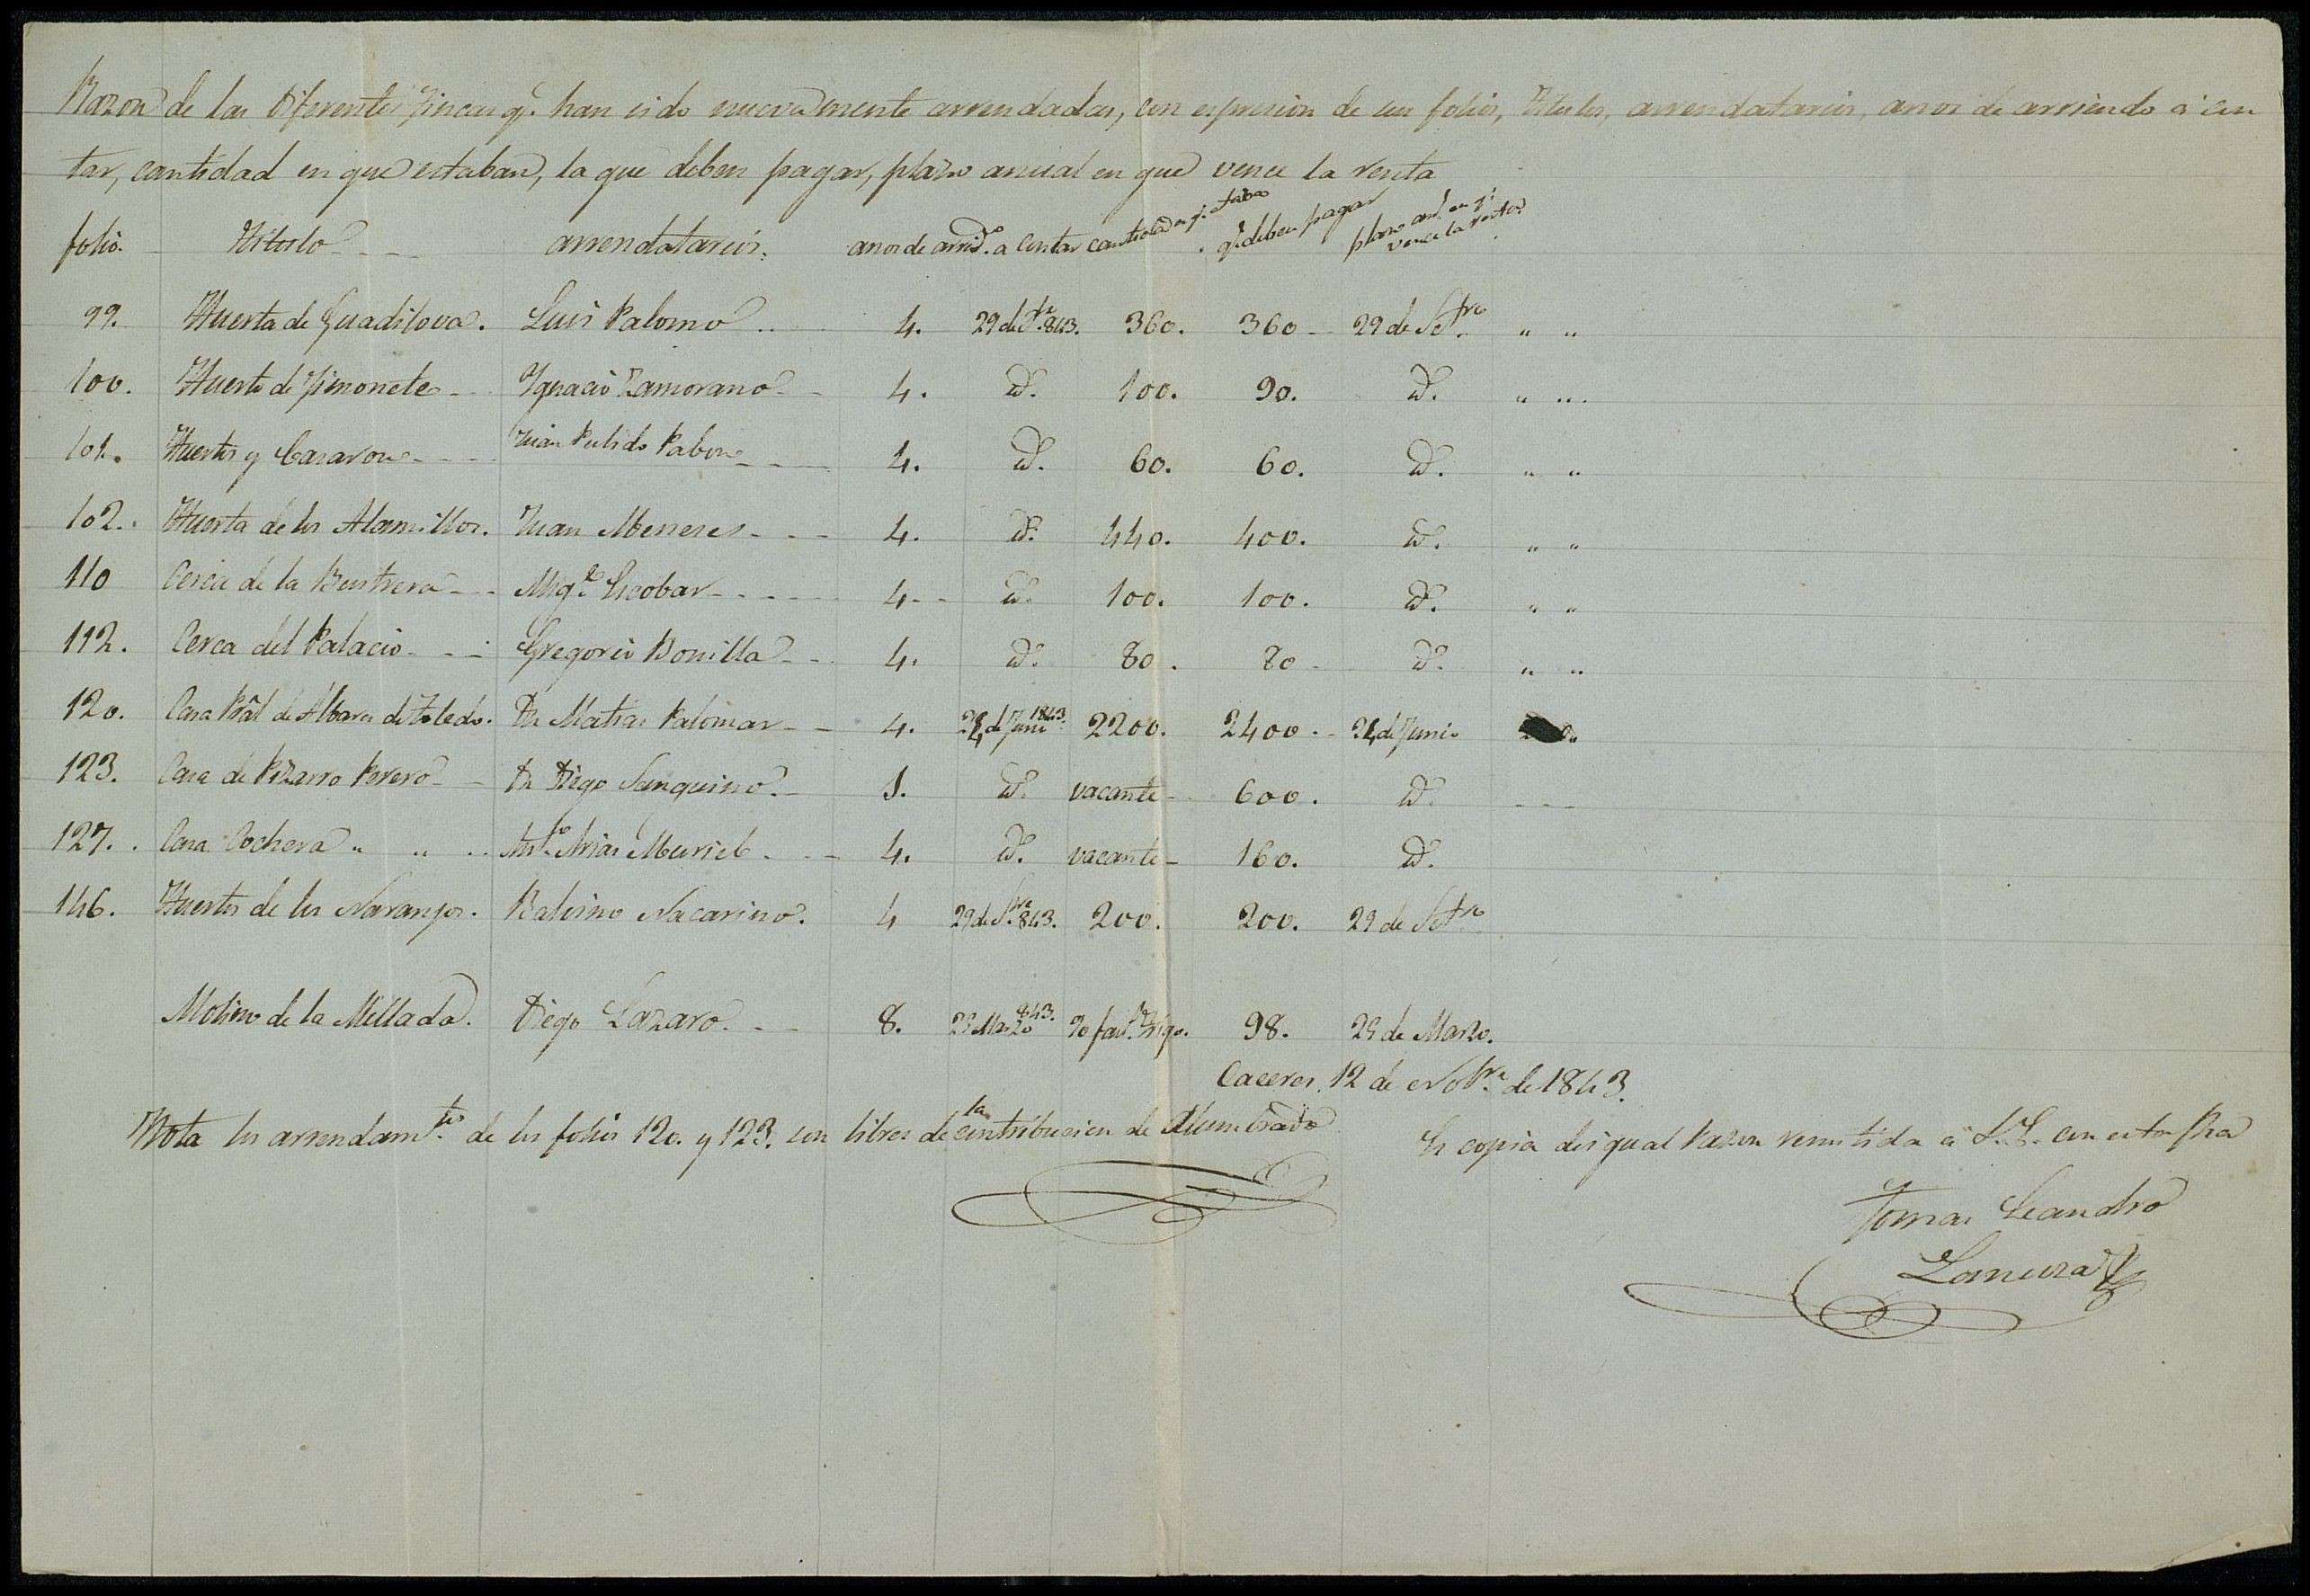 Razon de las diferentes fincas q.e han sido nuevamente arrendadas, con espresion de sus folios, titulos, arrendatarios, anos de arriendo a con
tar, cantidad en que estaban, la que deben pagar, plazo anual en que vence la renta
folio. Titulo arrendatarios. anos de arrd.o a contar cantidad en q.e estaba q.e deben pagar plazo anl. en q.e vence la renta
99. Huerta de Guadilova. Luis Palomo 4. 29 de S.bre 843. 360. 360 29 de Setre " "
100. Huerto de Simonete Ygnacio Zamorano 4. id. 100. 90. id. " "
101. Huertos y Casaron Juan Pulido Pabon 4. id. 60. 60. id. " "
102. Huerta de los Alamillos. Juan Meneses 4. id. 440. 400. id. " "
110 Cerca de la Bustrera Mig.l Escobar 4 id. 100. 100. id. " "
112. Cerca del Palacio Gregorio Bonilla 4. id. 80. 80 id. " "
120. Casa Pral de Albaro de Toledo. Dn Matias Palomar 4. 24 de Juni 1843. 2200. 2400. 24 de Junio
123. Casa de Pizarro Perero Dn Diego Sanguino. 1. id. vacante 600. id.
127. Casa Cochera " " Ant.o Arias Muriel 4. id. vacante 160. id.
146. Huertos de los Naranjos. Balvino Nacarino. 4 29 de S.bre 843. 200. 200. 29 de Setre
Molino de la Millada. Diego Lazaro. 8. 25 Marzo 843. 70 fan.s trigo. 98. 25 de Marzo.
Caceres, 12 de Nobre de 1843.
Nota los arrendam.tos de los folios 120. y 123. son libres de la contribucion de Alumbrado
Es copia de igual razon remitida a S.E. con esta fha
Tomas Leandro